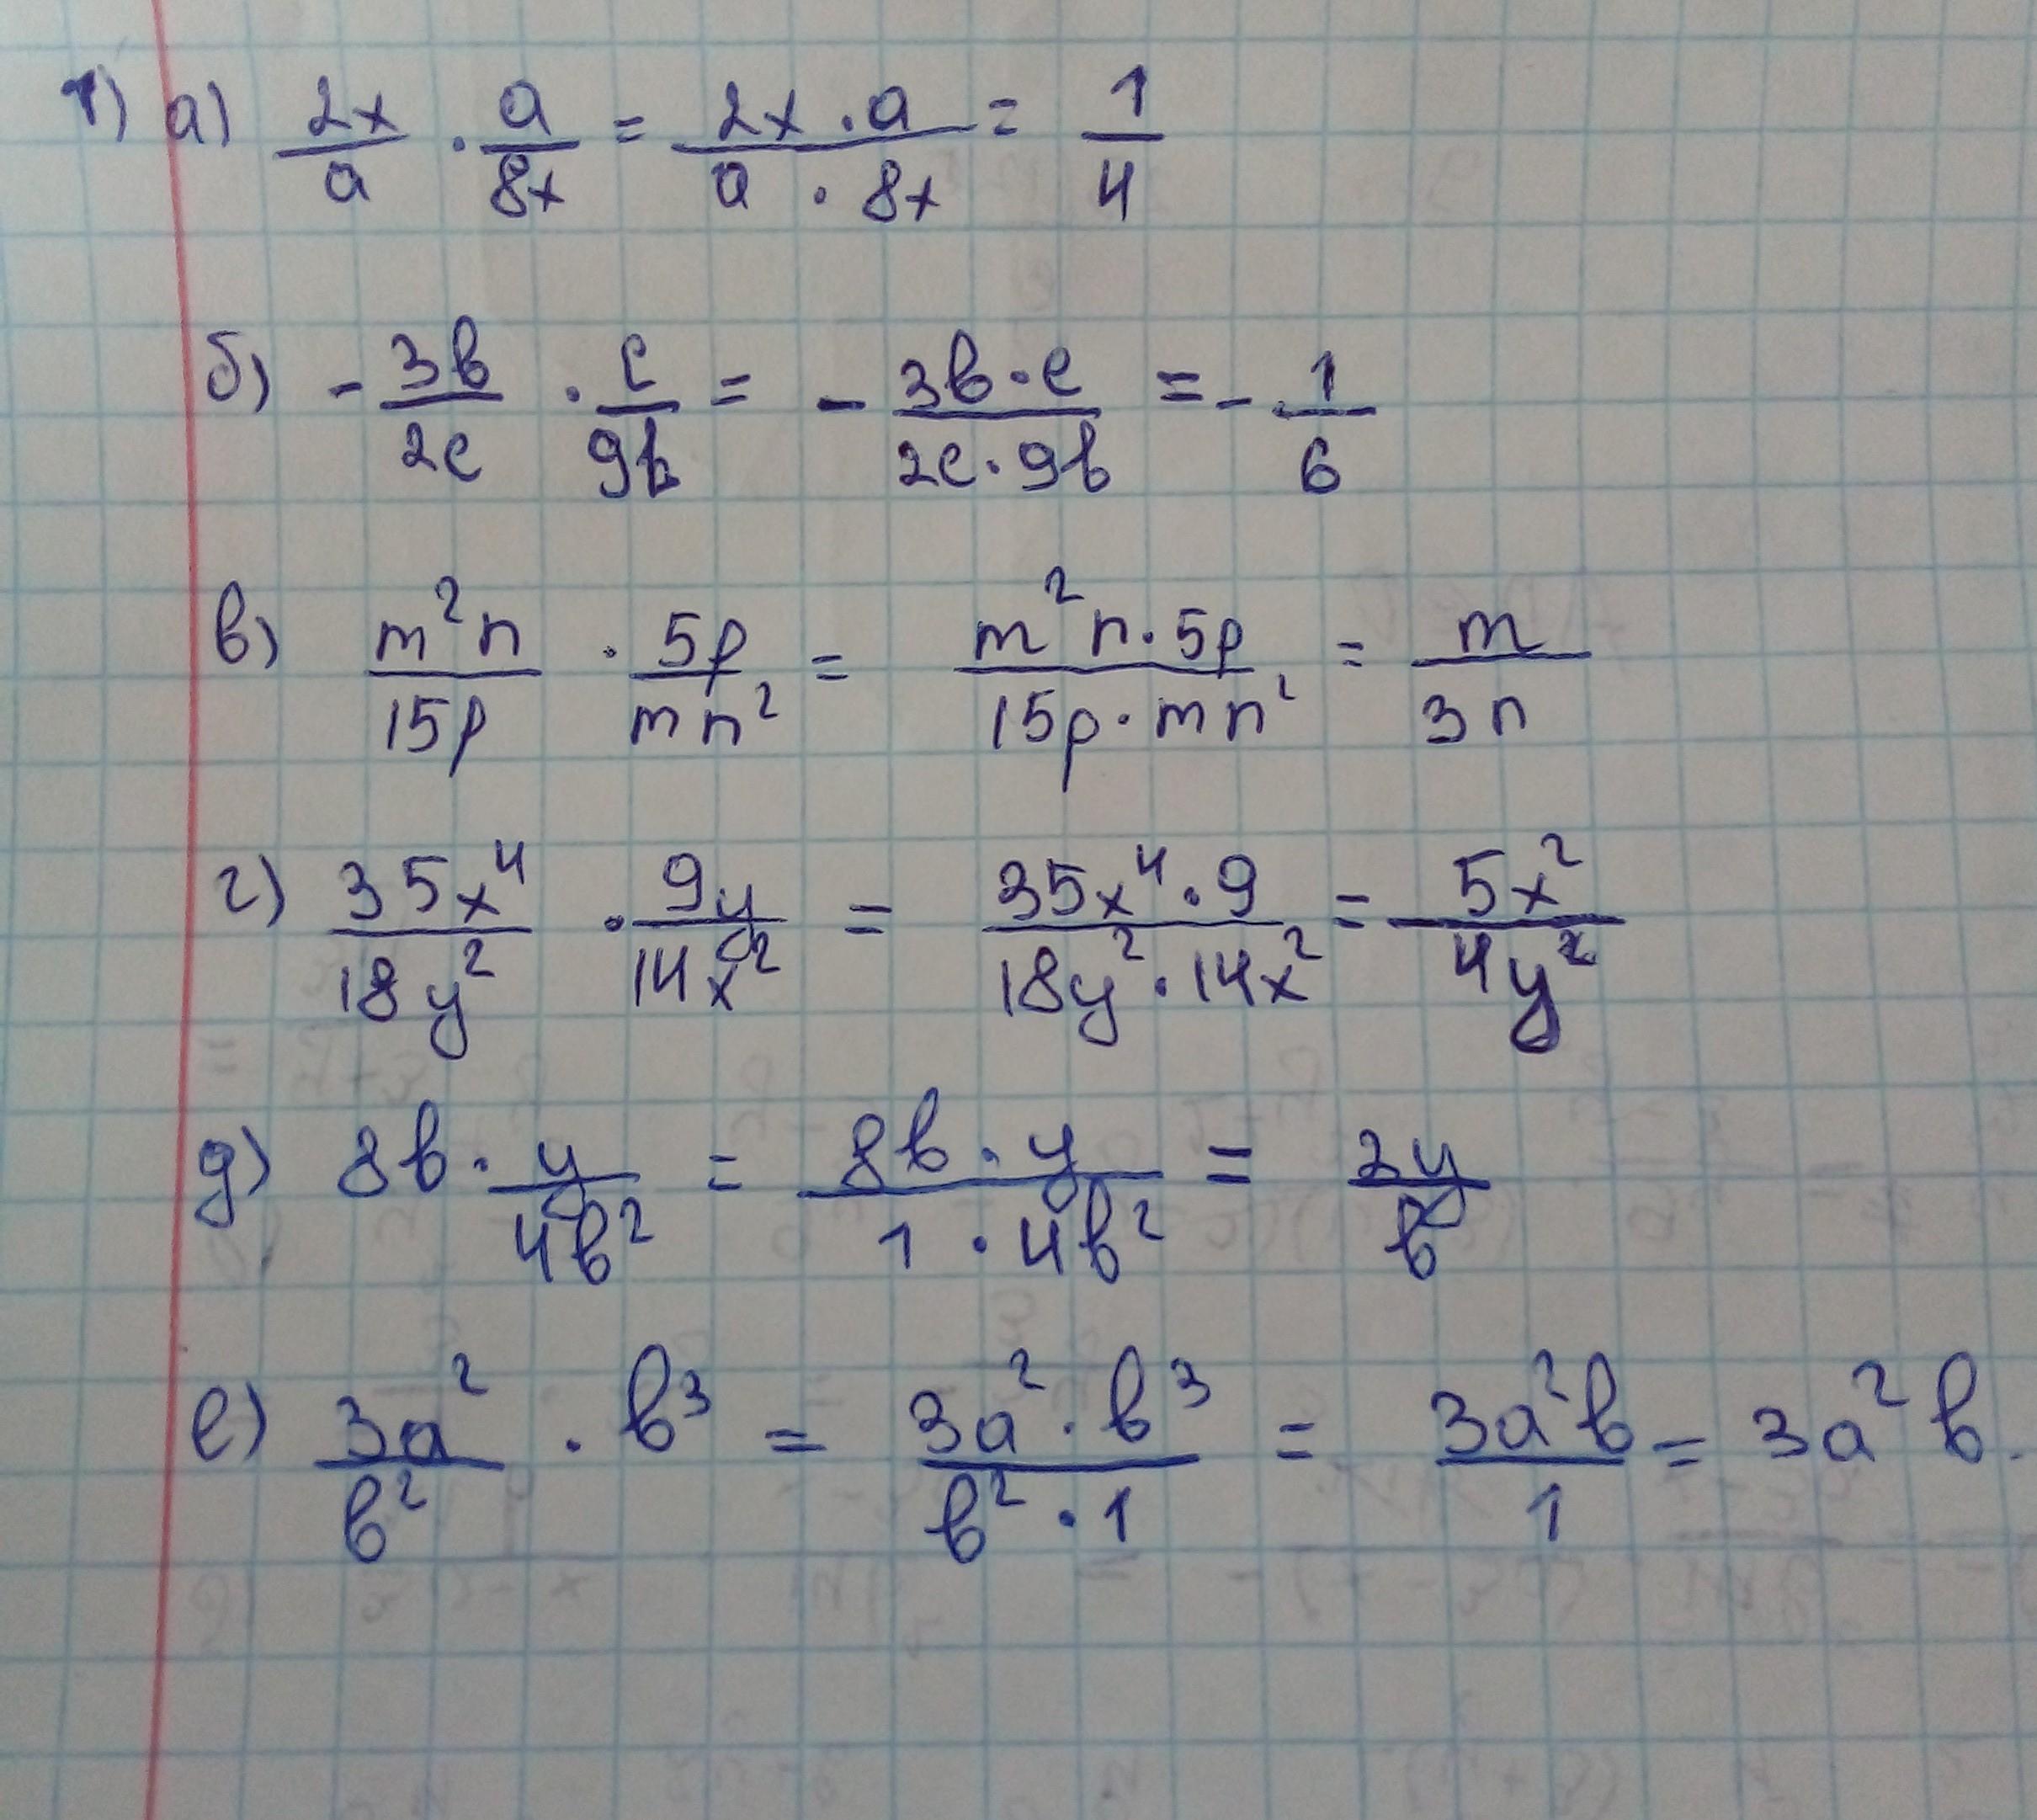 1) а) 2x/a · a/8x = 2x · a/a · 8x = 1/4
б) - 3в/2c · c/9в = - 3в · c/2c · 9в = - 1/6
в) m²n/15p · 5p/mn² = m²n · 5p/15p · mn² = m/3n
г) 35x⁴/18y² · 9y/14x² = 35x⁴ · 9/18y² · 14x² = 5x²/4y²
д) 8в · y/4в² = 8в · y/1 · 4в² = 2y/в
е) 3a²/в² · в³ = 3a² · в³/в² · 1 = 3a²в/1 = 3a²в.